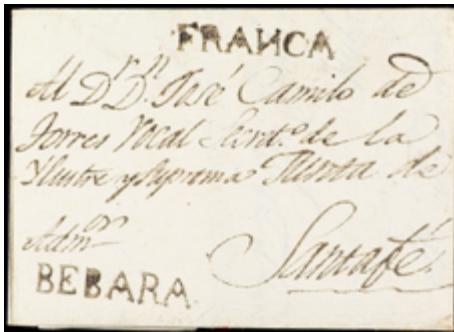 FRANCA
Al Dr. Dn. José Camilo de
Torres Vocal Secreto. de la
Ylustre y Suprema Junta de
Admon
Santafé.
BEBARA